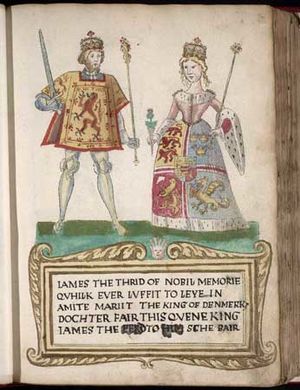 IAMES THE THRID OF NOBIL MEMORIE
QVHILK EVER LVFFIT TO LEVE IN
AMITE MARIIT THE KING OF DENMERK
DOCHTER FAIR THIS QVENE KING
IAMES THE TO SCHE BAIR